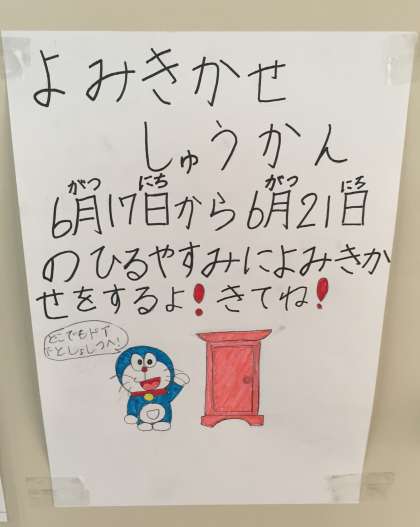 よみきかせ
しゅうかん
がつ にち がつ にち
6月17日から6月21日
のひるやすみによみきか
せをするよ!きてね!
どこでもドア
でとしょしつへ!